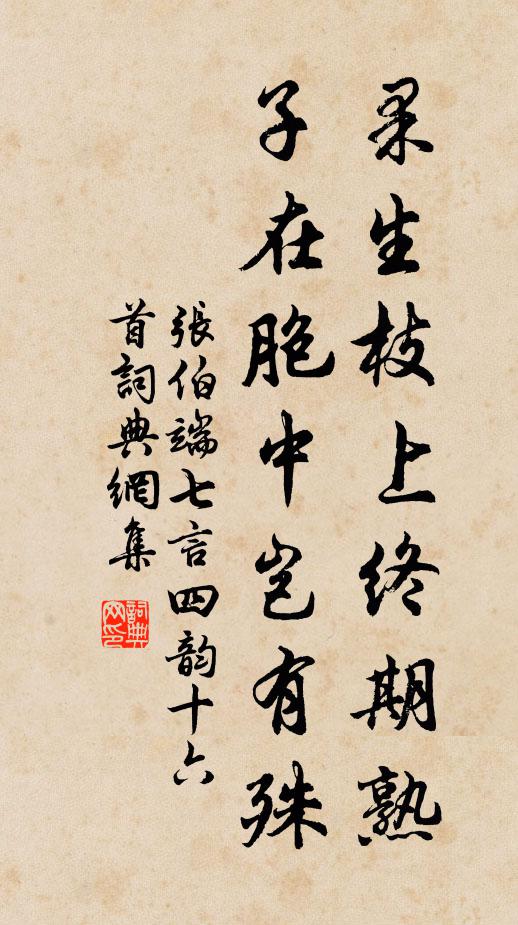 果生枝上終期熟
子在胞中豈有殊
張伯端七言四韵十六
首詞典網集
詞典
网印